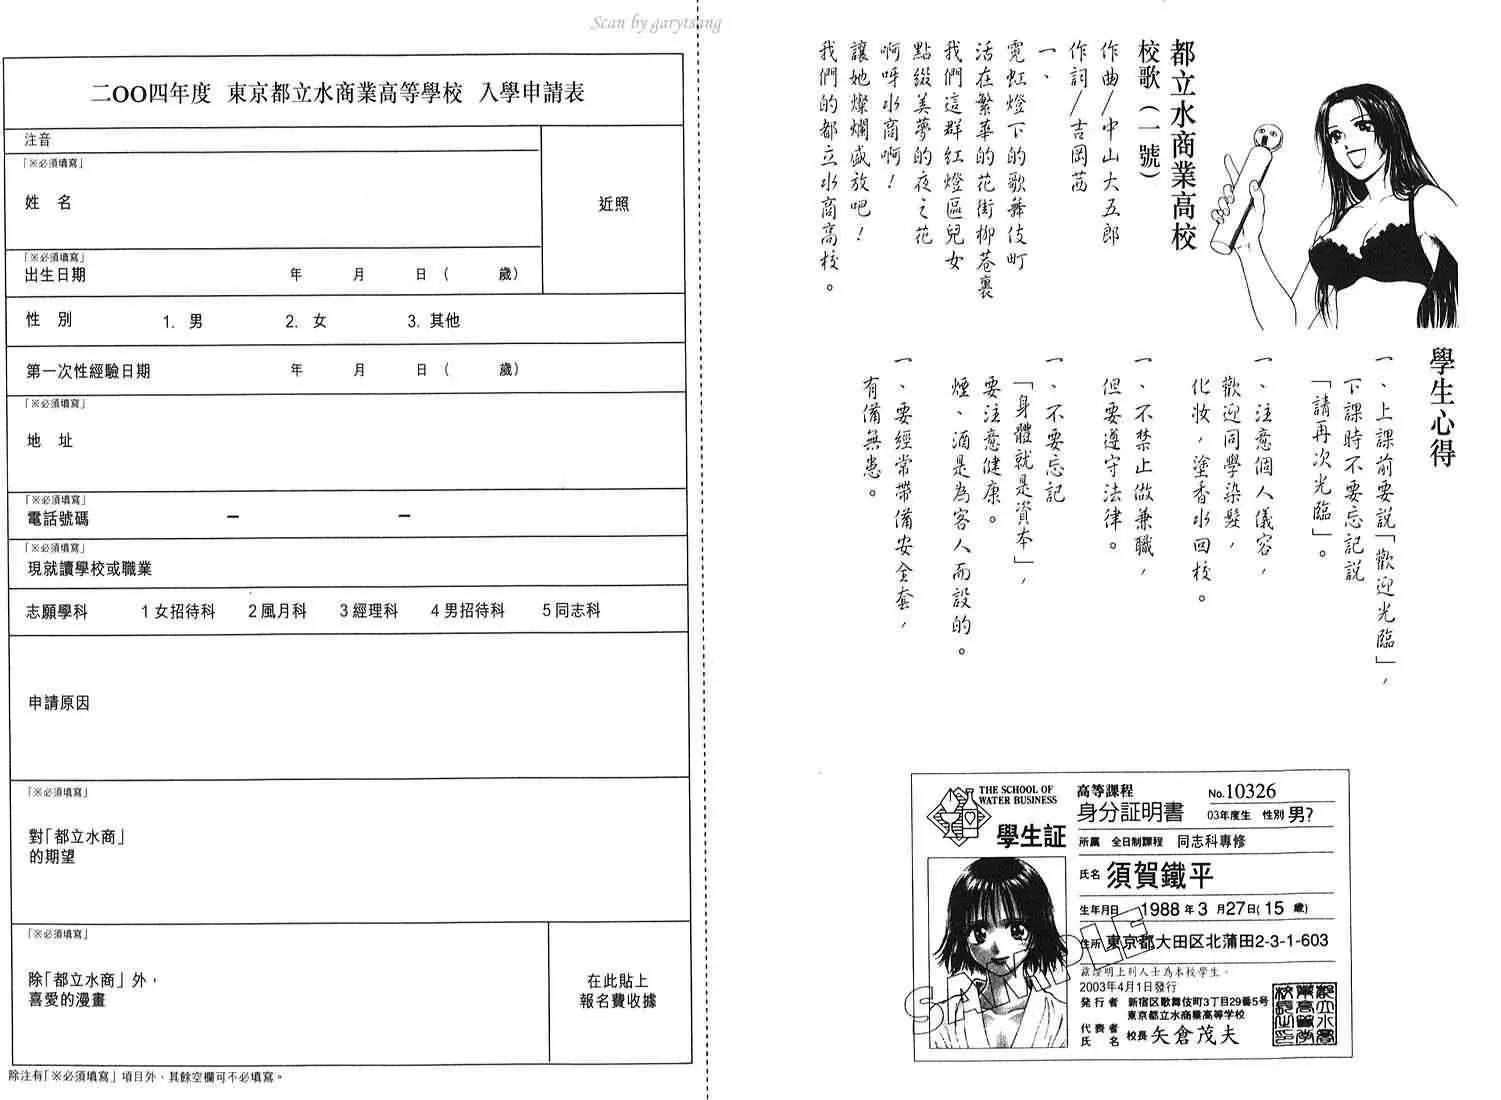 Scan by garytsang
二OO四年度 東京都立水商業高等學校 入學申請表
注音
「※必須填寫」
姓 名
近照
「※必須填寫」
出生日期 年 月 日 ( 歲)
性 別 1. 男 2. 女 3. 其他
第一次性經驗日期 年 月 日 ( 歲)
「※必須填寫」
地 址
「※必須填寫」
電話號碼 － －
「※必須填寫」
現就讀學校或職業
志願學科 1女招待科 2風月科 3經理科 4男招待科 5同志科
申請原因
「※必須填寫」
對「都立水商」
的期望
「※必須填寫」
除「都立水商」外，
喜愛的漫畫
在此貼上
報名費收據
除注有「※必須填寫」項目外、其餘空欄可不必填寫。
都立水商業高校
校歌（一號）
作曲/中山大五郎
作詞/吉岡茜
一、
霓虹燈下的歌舞伎町
活在繁華的花街柳巷裏
我們這群紅燈區兒女
點綴美夢的夜之花
啊呼水商啊！
讓她燦爛盛放吧！
我們的都立水商高校。
學生心得
一、上課前要說「歡迎光臨」，
下課時不要忘記說
「請再次光臨」。
一、注意個人儀容，
歡迎同學染髮，
化妝，塗香水回校。
一、不禁止做兼職，
但要遵守法律。
一、不要忘記
「身體就是資本」，
要注意健康。
煙、酒是為客人而設的。
一、要經常帶備安全套，
有備無患。
THE SCHOOL OF
WATER BUSINESS
學生証
高等課程
身分証明書
No.10326
03年度生 性別 男?
所屬 全日制課程 同志科專修
氏名 須賀鐵平
生年月日 1988 年 3 月 27 日( 15 歲)
住所 東京都大田区北蒲田2-3-1-603
茲證明上列人士為本校學生。
2003年4月1日發行
発行者 新宿区歌舞伎町3丁目29番5号
東京都立水商業高等学校
代表者
氏名 校長 矢倉茂夫
SAMPLE